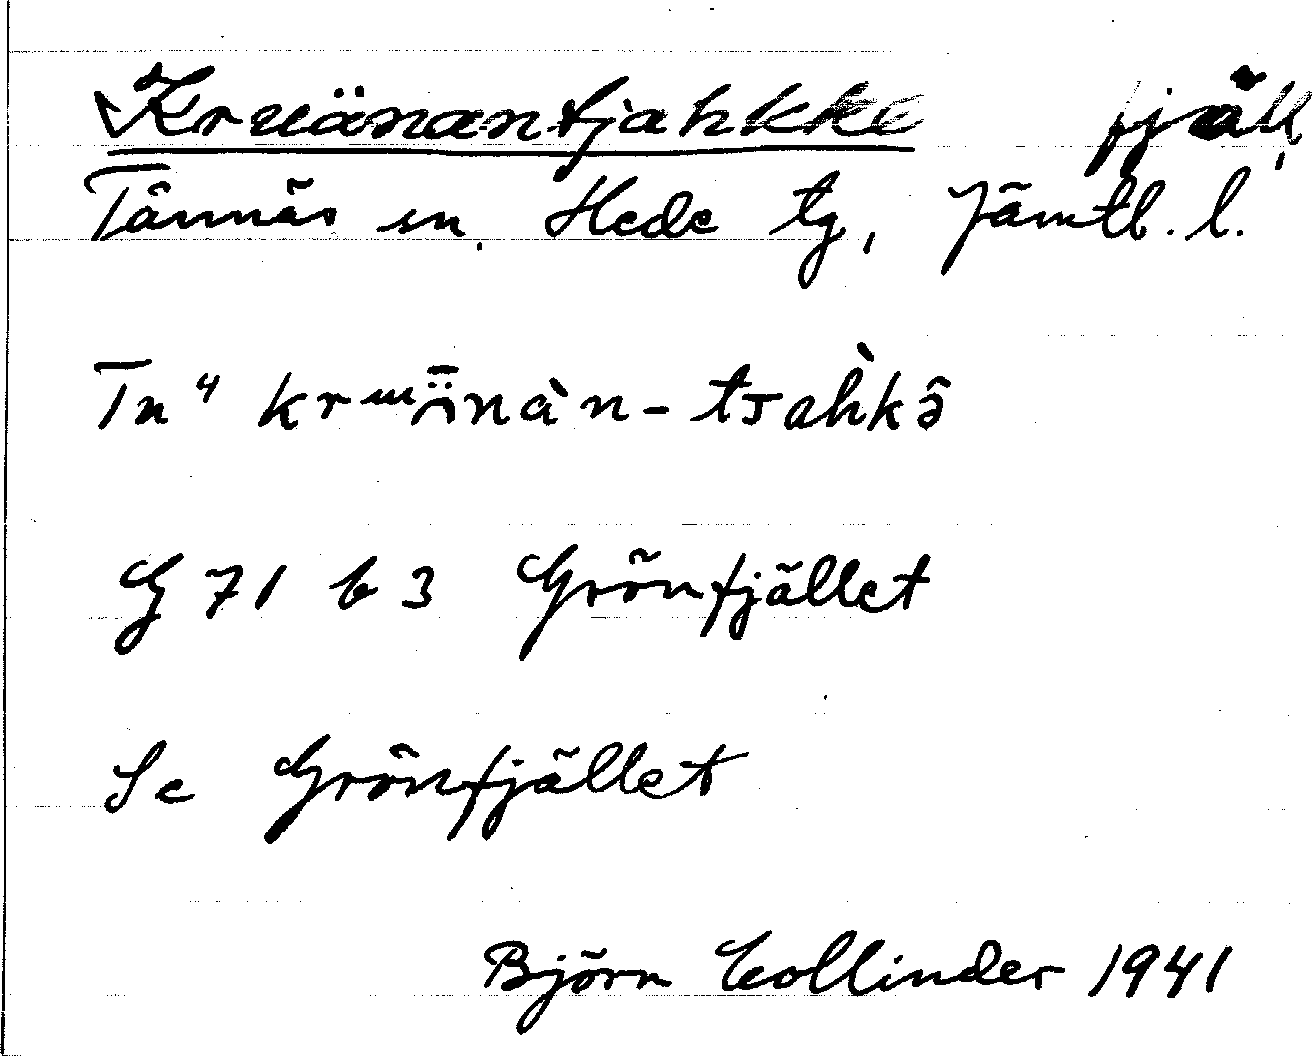 Kruänantjahkke fjäll,
Tännäs sn. Hede tg, Jämtl. l.
Tn 4 krɯǟnàn-tsahkə̂
G 71 b 3 Grönfjället
Se Grönfjället
Björn Collinder 1941